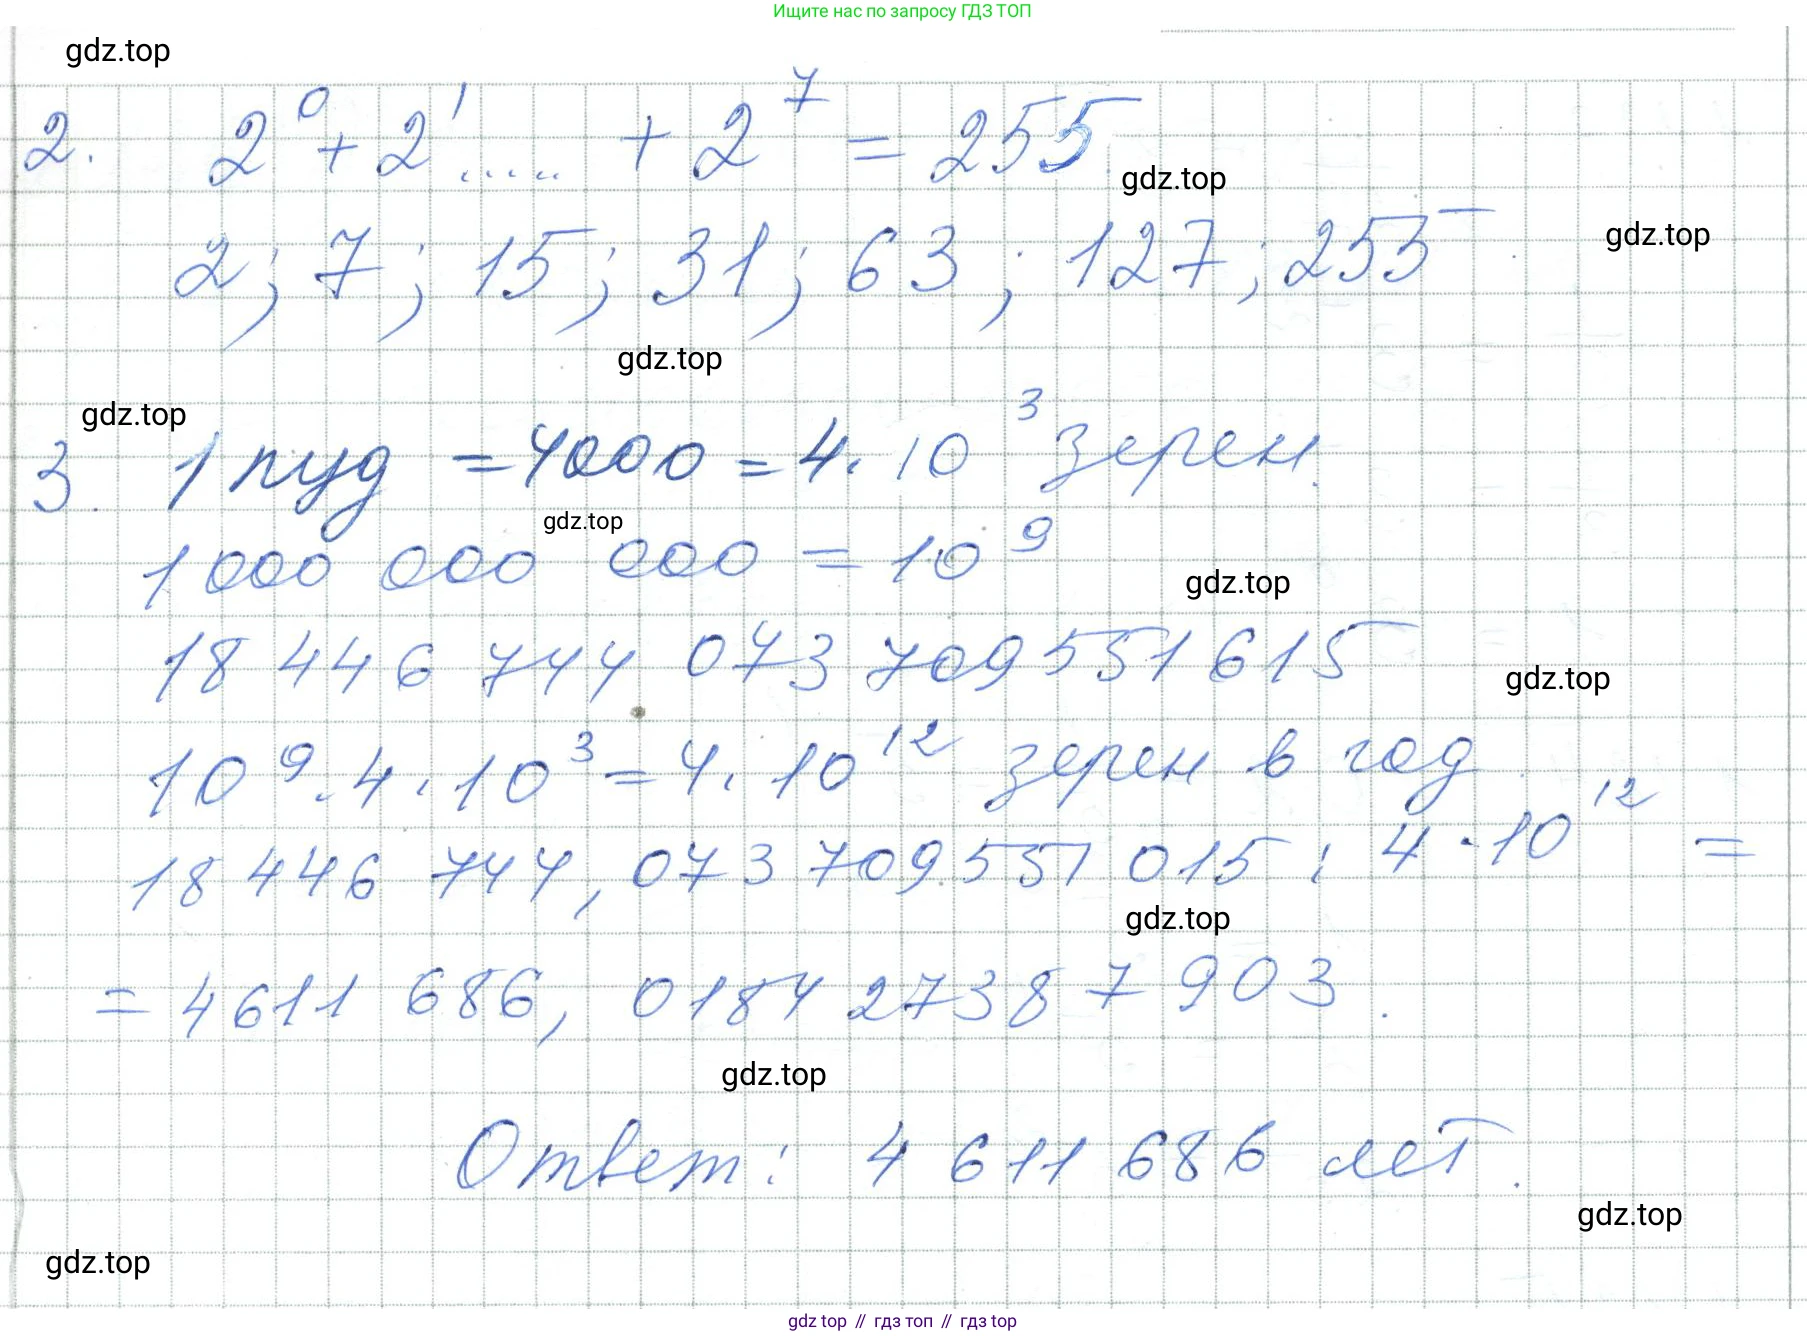 Ищите нас по запросу ГДЗ ТОП
gdz.top
2. 2⁰ + 2¹ ..... + 2⁷ = 255
gdz.top
2; 7; 15; 31; 63; 127; 255
gdz.top
gdz.top
gdz.top
3. 1 пуд = 4000 = 4 · 10³ зерен.
gdz.top
1 000 000 000 = 10⁹
gdz.top
18 446 744 073 709 551 615
gdz.top
10⁹ · 4 · 10³ = 4 · 10¹² зерен в год
18 446 744, 073 709 551 015 : 4 · 10¹² =
gdz.top
= 4611 686, 0184 2738 7 903.
gdz.top
Ответ: 4 611 686 лет.
gdz.top
gdz.top
gdz top // гдз топ // gdz top